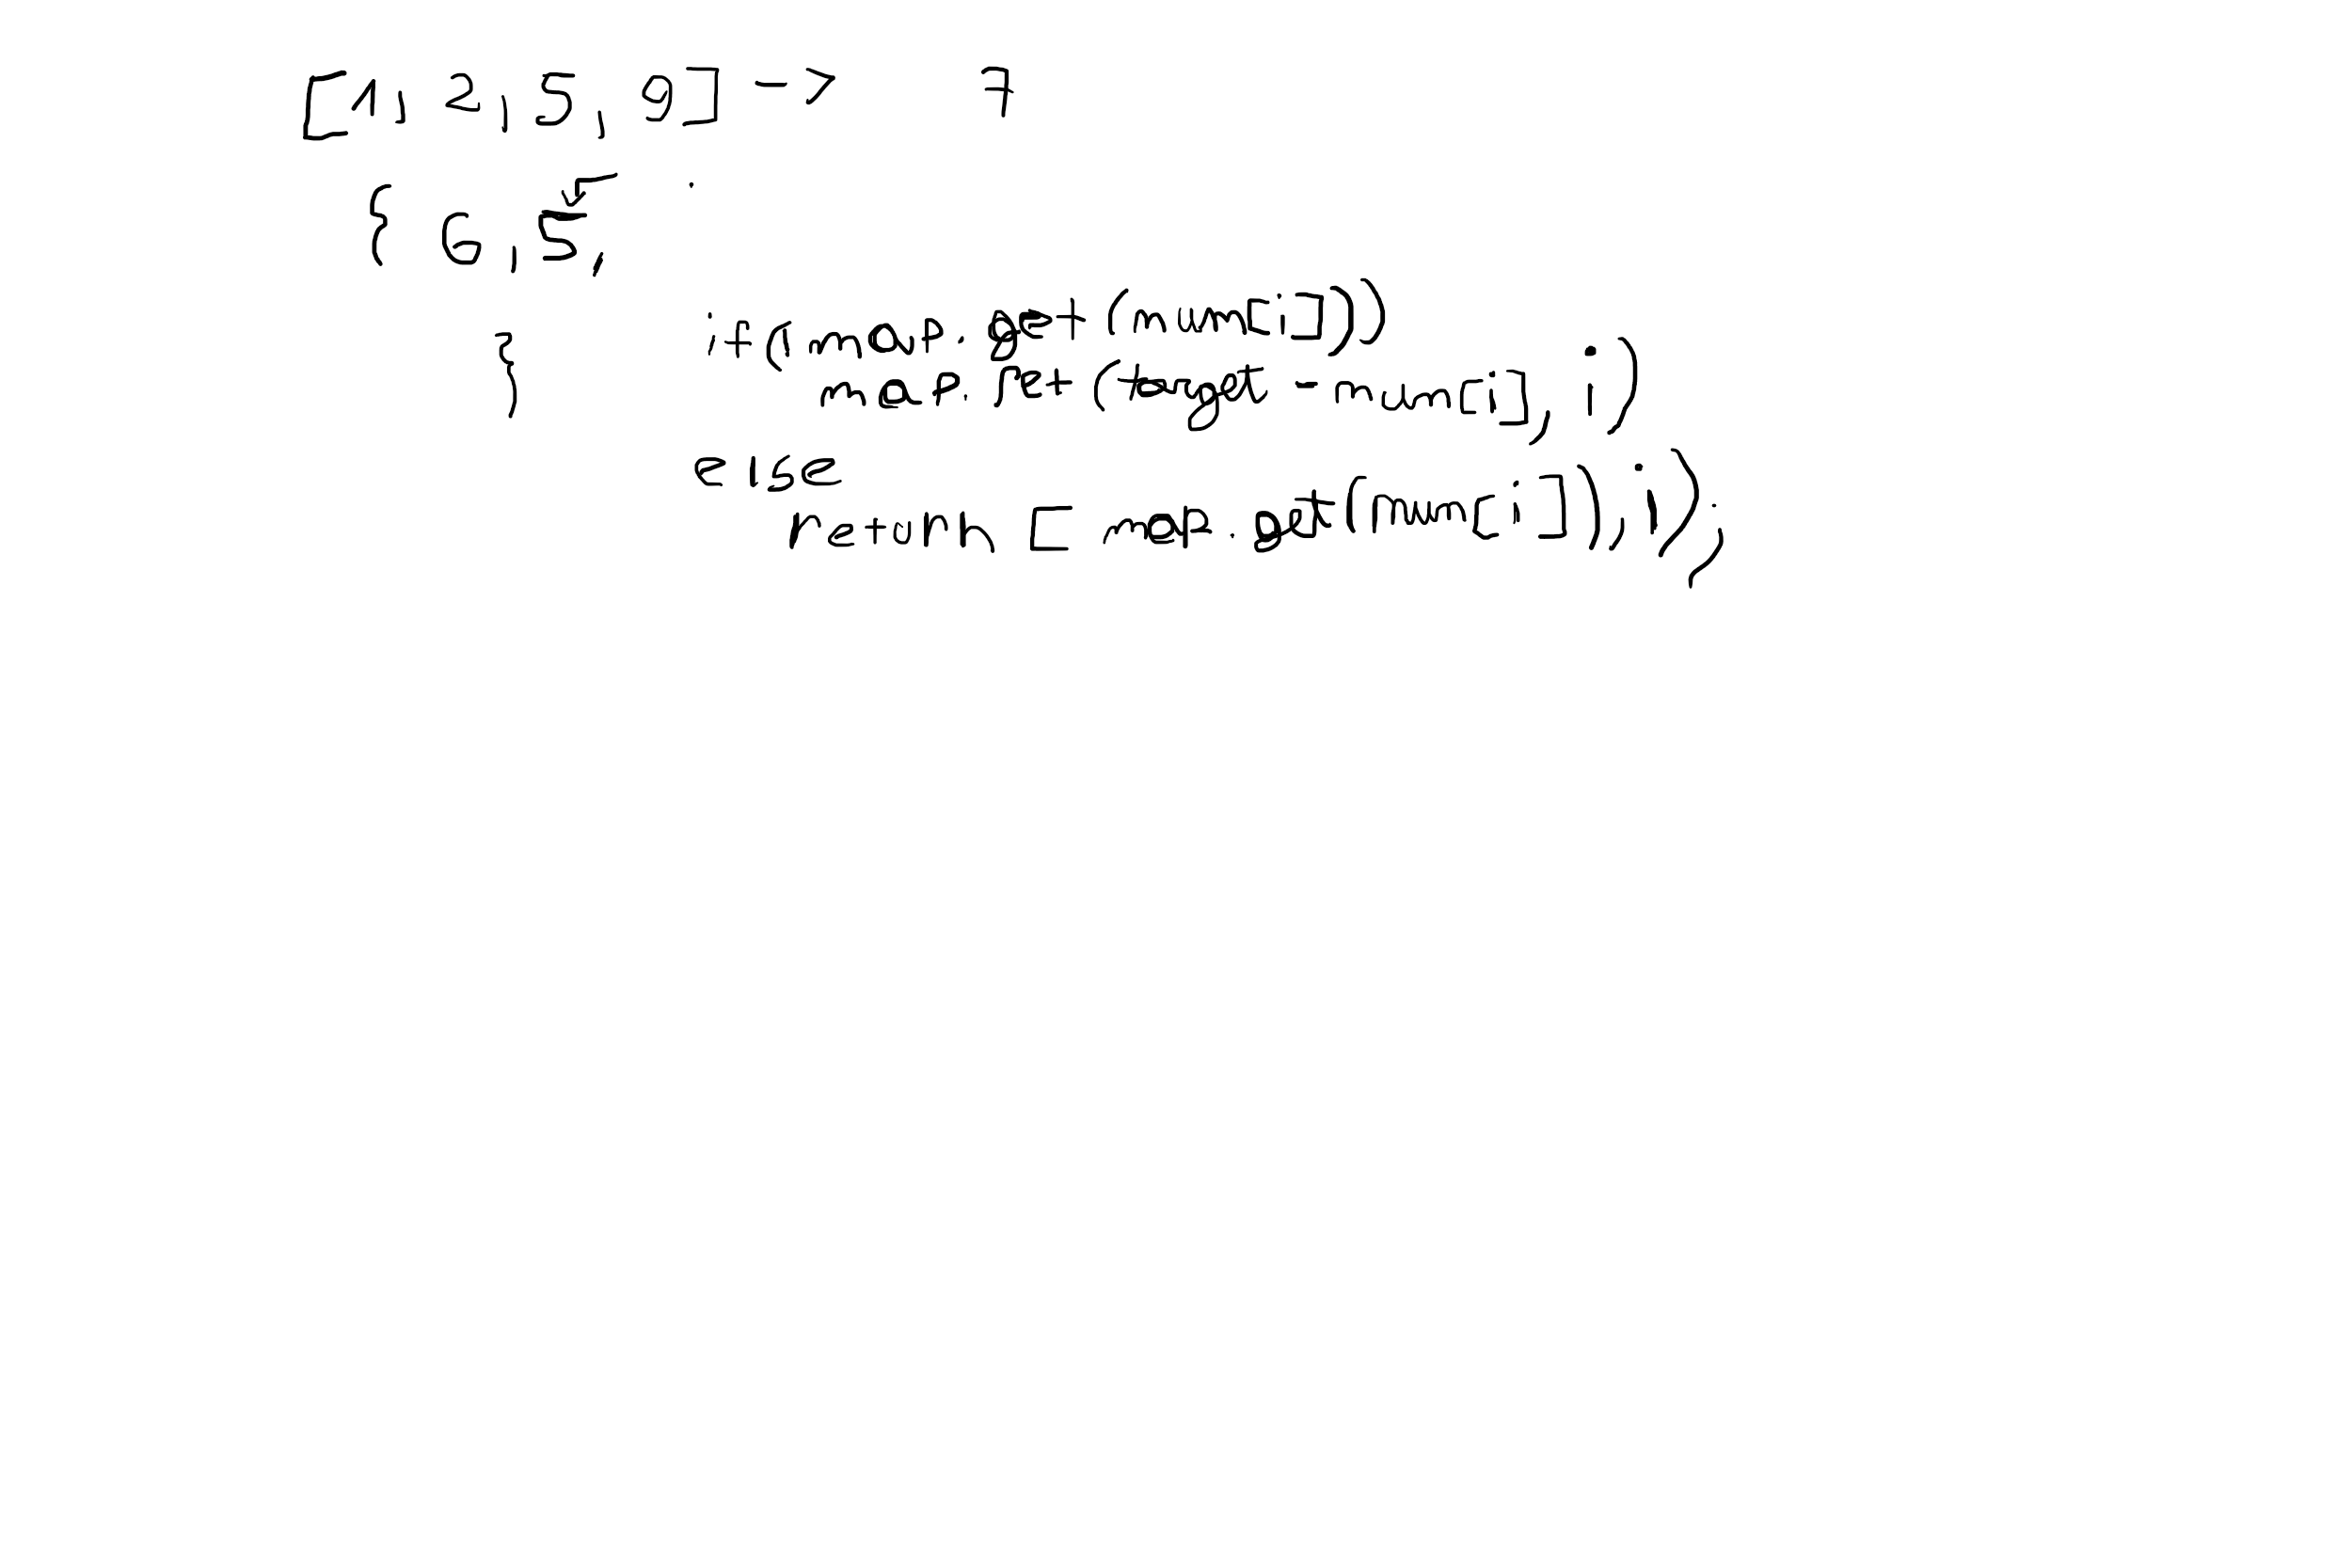 [1, 2, 5, 9] -> 7
{ 6, 5, √
}
if(!map.get(num[i]))
map.set(target-num[i], i)
else
return [map.get(num[i]), i);